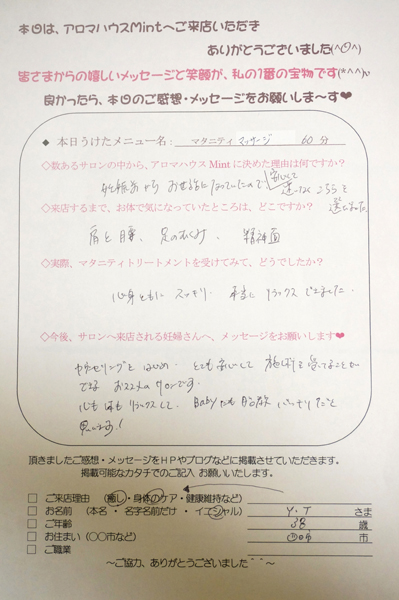 本日は、アロマハウスMintへご来店いただき
ありがとうございました(^O^)
皆さまからの嬉しいメッセージと笑顔が、私の1番の宝物です(*^^*)v
良かったら、本日のご感想・メッセージをお願いしま～す❤
◆ 本日うけたメニュー名： マタニティ マッサージ 60 分
◇数あるサロンの中から、アロマハウス Mint に決めた理由は何ですか？
妊娠前から お世話になっていたので 安心して
迷いなくこちらを
選びました
◇来店するまで、お体で気になっていたところは、どこですか？
肩と腰、足のむくみ、 精神面
◇実際、マタニティトリートメントを受けてみて、どうでしたか？
心身ともに スッキリ 本当に リラックス できました。
◇今後、サロンへ来店される妊婦さんへ、メッセージをお願いします❤
カウンセリングを はじめ、 とても 安心して 施術を 受けることが
できる おススメの サロンです。
心も 体も リラックスして、 Babyたちも
思います！
頂きましたご感想・メッセージをHPやブログなどに掲載させていただきます。
掲載可能なカタチでのご記入 お願いいたします。
□ ご来店理由 （癒し・身体のケア・健康維持など）
□ お名前 （本名 ・ 名字名前だけ ・ イニシャル） Y．T さま
□ ご年齢 38 歳
□ お住まい（〇〇市など） 市
□ ご職業
～ご協力、ありがとうございました＾＾～